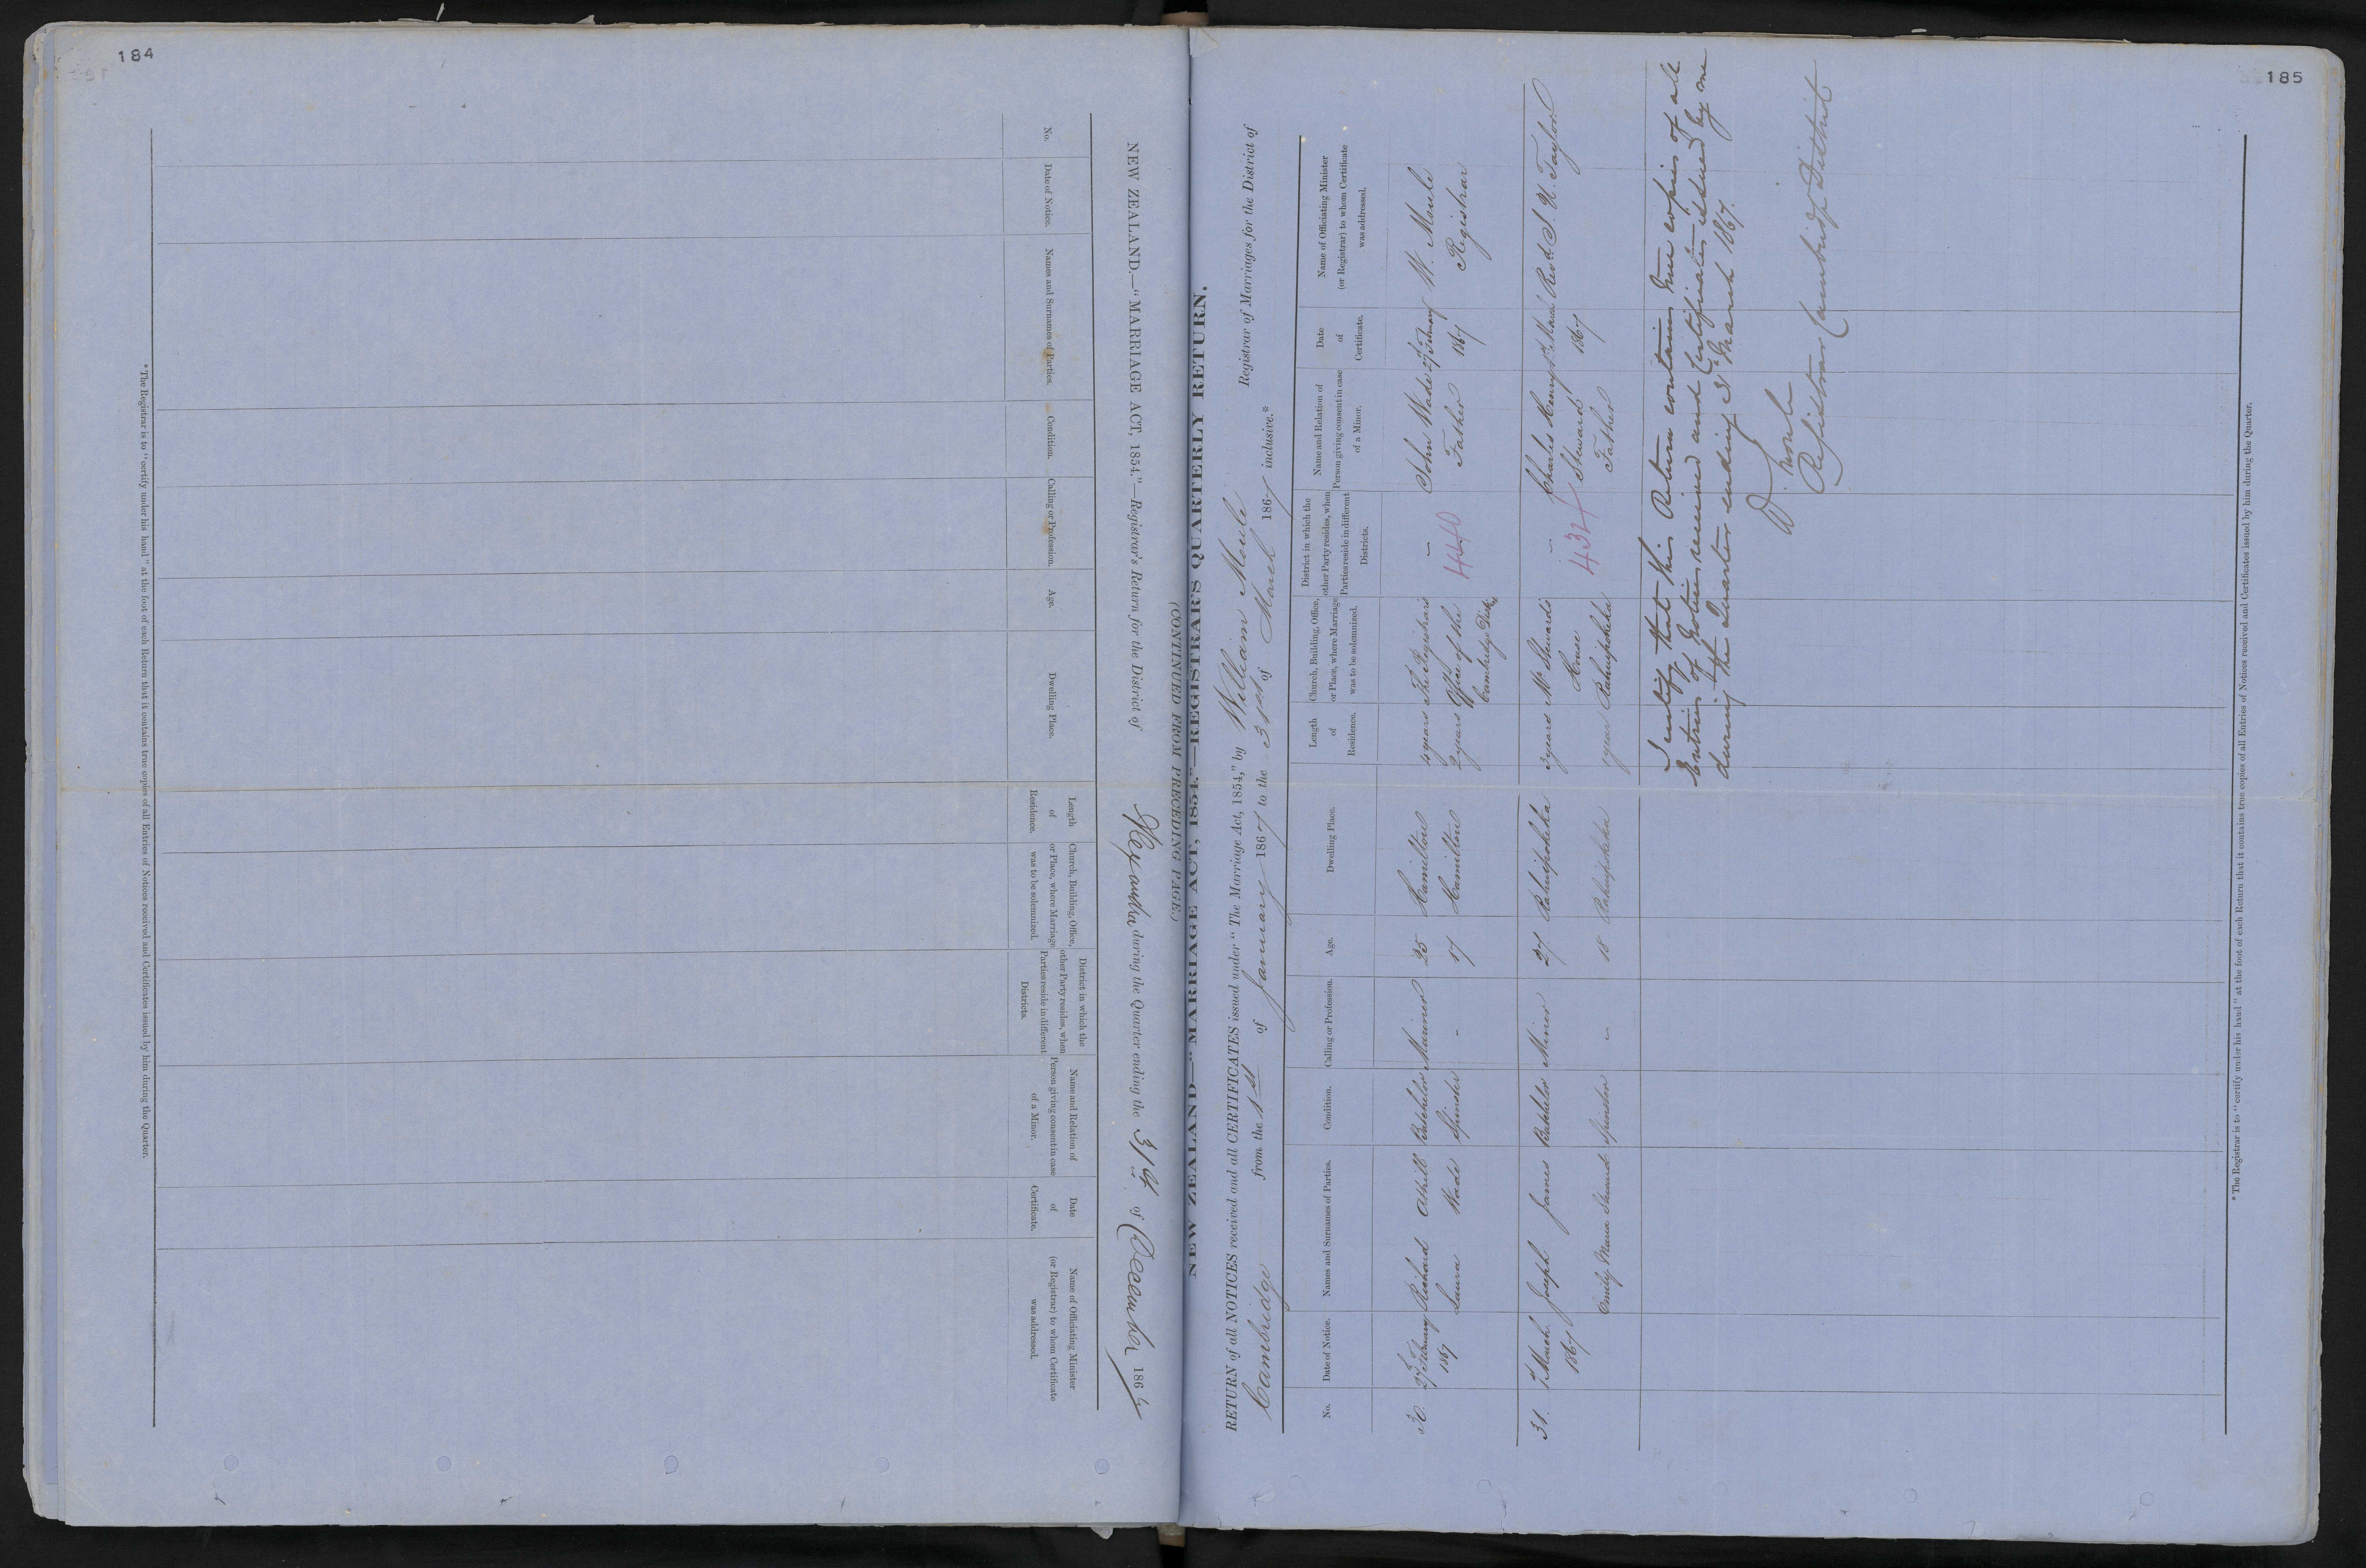 184
NEW ZEALAND.—“MARRIAGE ACT, 1854.”—Registrar's Return for the District of Alexandra during the Quarter ending the 31st of December 186
(CONTINUED FROM PRECEDING PAGE.)
No.
Date of Notice.
Names and Surnames of Parties.
Condition.
Calling or Profession.
Age.
Dwelling Place.
Length
of
Residence.
Church, Building, Office,
or Place, where Marriage
was to be solemnized.
District in which the
other Party resides, when
Parties reside in different
Districts.
Name and Relation of
Person giving consent in case
of a Minor.
Date
of
Certificate.
Name of Officiating Minister
(or Registrar) to whom Certificate
was addressed.
* The Registrar is to “certify under his hand” at the foot of each Return that it contains true copies of all Entries of Notices received and Certificates issued by him during the Quarter.
185
NEW ZEALAND—“MARRIAGE ACT, 1854.”—REGISTRAR'S QUARTERLY RETURN.
RETURN of all NOTICES received and all CERTIFICATES issued under “The Marriage Act, 1854,” by William Moule Registrar of Marriages for the District of
Cambridge from the 1st of January 1867 to the 31st of March 1867 inclusive.*
No.
Date of Notice.
Names and Surnames of Parties.
Condition.
Calling or Profession.
Age.
Dwelling Place.
Length
of
Residence.
Church, Building, Office,
or Place, where Marriage
was to be solemnized.
District in which the
other Party resides, when
Parties reside in different
Districts.
Name and Relation of
Person giving consent in case
of a Minor.
Date
of
Certificate.
Name of Officiating Minister
(or Registrar) to whom Certificate
was addressed.
30. 27 February Richard Athill Batchelor Mariner 25 Hamilton 4 years The Registrars – John Wade 27 February W. Moule
1867 Laura Wade Spinster – 17 Hamilton 2 years Office of the 440 Father 1867 Registrar
Cambridge Dist.
31. 7 March Joseph James Batchelor Miner 27 Rahuipokeka 3 years Mr Stewards – Charles Henry March Revd S. H. Taylor
1867 House Steward 1867
Emily Maria Steward Spinster – 18 Rahuipokeka years Rahuipokeka 43 Father
I certify that this Return contains true copies of all
Entries of Notices received and Certificates issued by me
during the Quarter ending 31st March 1867.
W Moule
Registrar Cambridge District
* The Registrar is to “certify under his hand” at the foot of each Return that it contains true copies of all Entries of Notices received and Certificates issued by him during the Quarter.